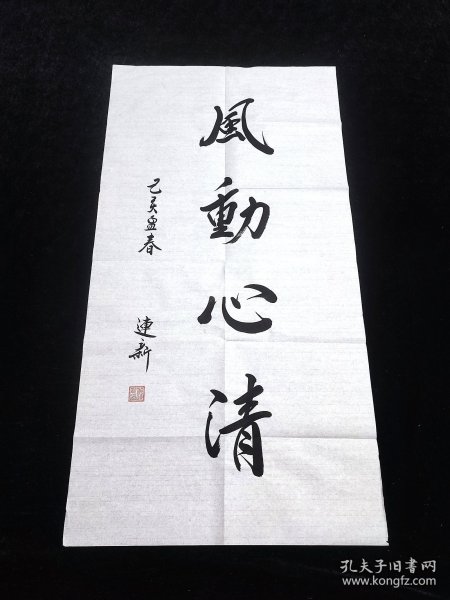 風動心清
己亥孟春
連新
孔夫子旧书网
www.kongfz.com